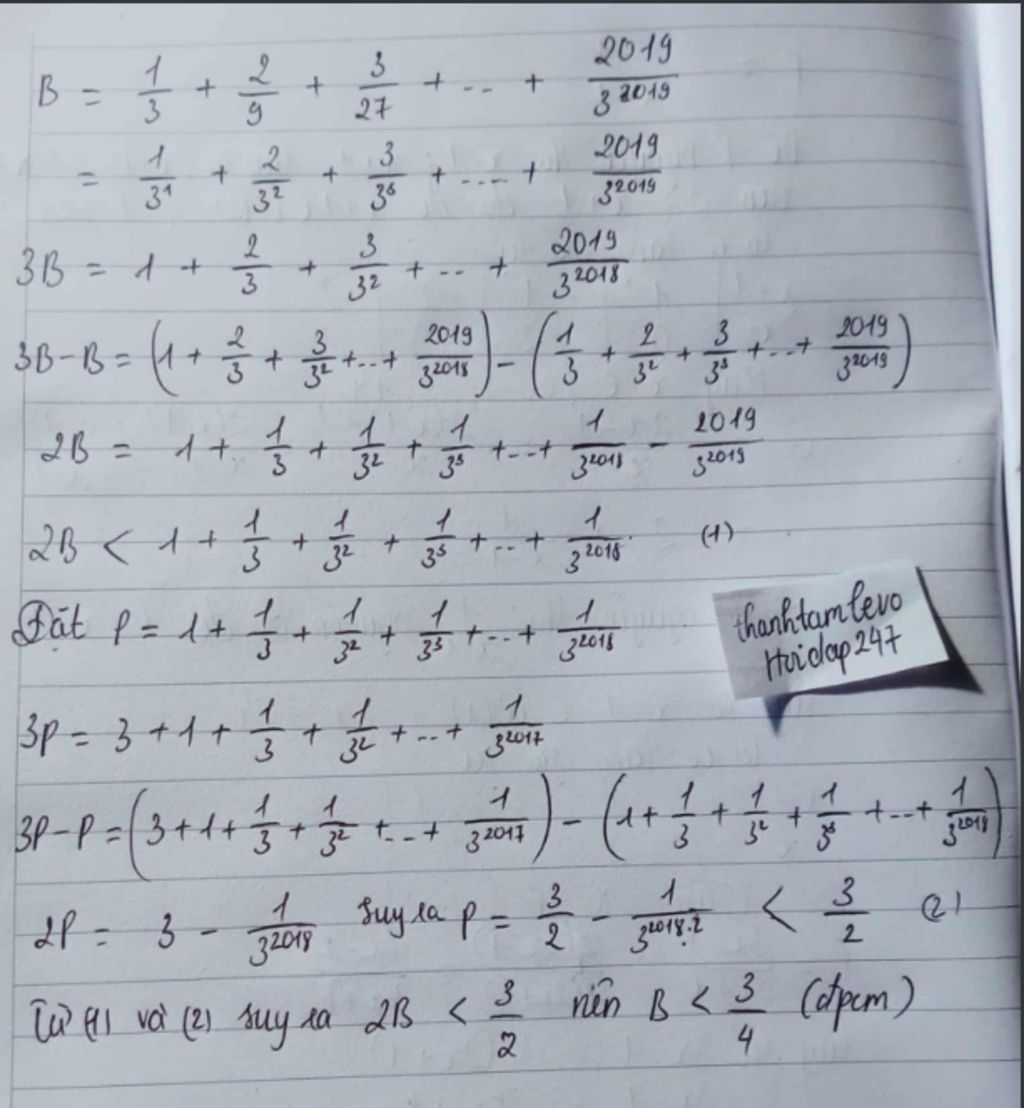 B = 1/3 + 2/9 + 3/27 + ... + 2019/3^2019
= 1/3^1 + 2/3^2 + 3/3^3 + .... + 2019/3^2019
3B = 1 + 2/3 + 3/3^2 + ... + 2019/3^2018
3B - B = (1 + 2/3 + 3/3^2 + ... + 2019/3^2018) - (1/3 + 2/3^2 + 3/3^3 + ... + 2019/3^2019)
2B = 1 + 1/3 + 1/3^2 + 1/3^3 + ... + 1/3^2018 - 2019/3^2019
2B < 1 + 1/3 + 1/3^2 + 1/3^3 + ... + 1/3^2018 (1)
Đặt P = 1 + 1/3 + 1/3^2 + 1/3^3 + ... + 1/3^2018
thanhtamlevo
Hoidap247
3P = 3 + 1 + 1/3 + 1/3^2 + ... + 1/3^2017
3P - P = (3 + 1 + 1/3 + 1/3^2 + ... + 1/3^2017) - (1 + 1/3 + 1/3^2 + 1/3^3 + ... + 1/3^2018)
2P = 3 - 1/3^2018 suy ra P = 3/2 - 1/(3^2018.2) < 3/2 (2)
Từ (1) và (2) suy ra 2B < 3/2 nên B < 3/4 (đpcm)